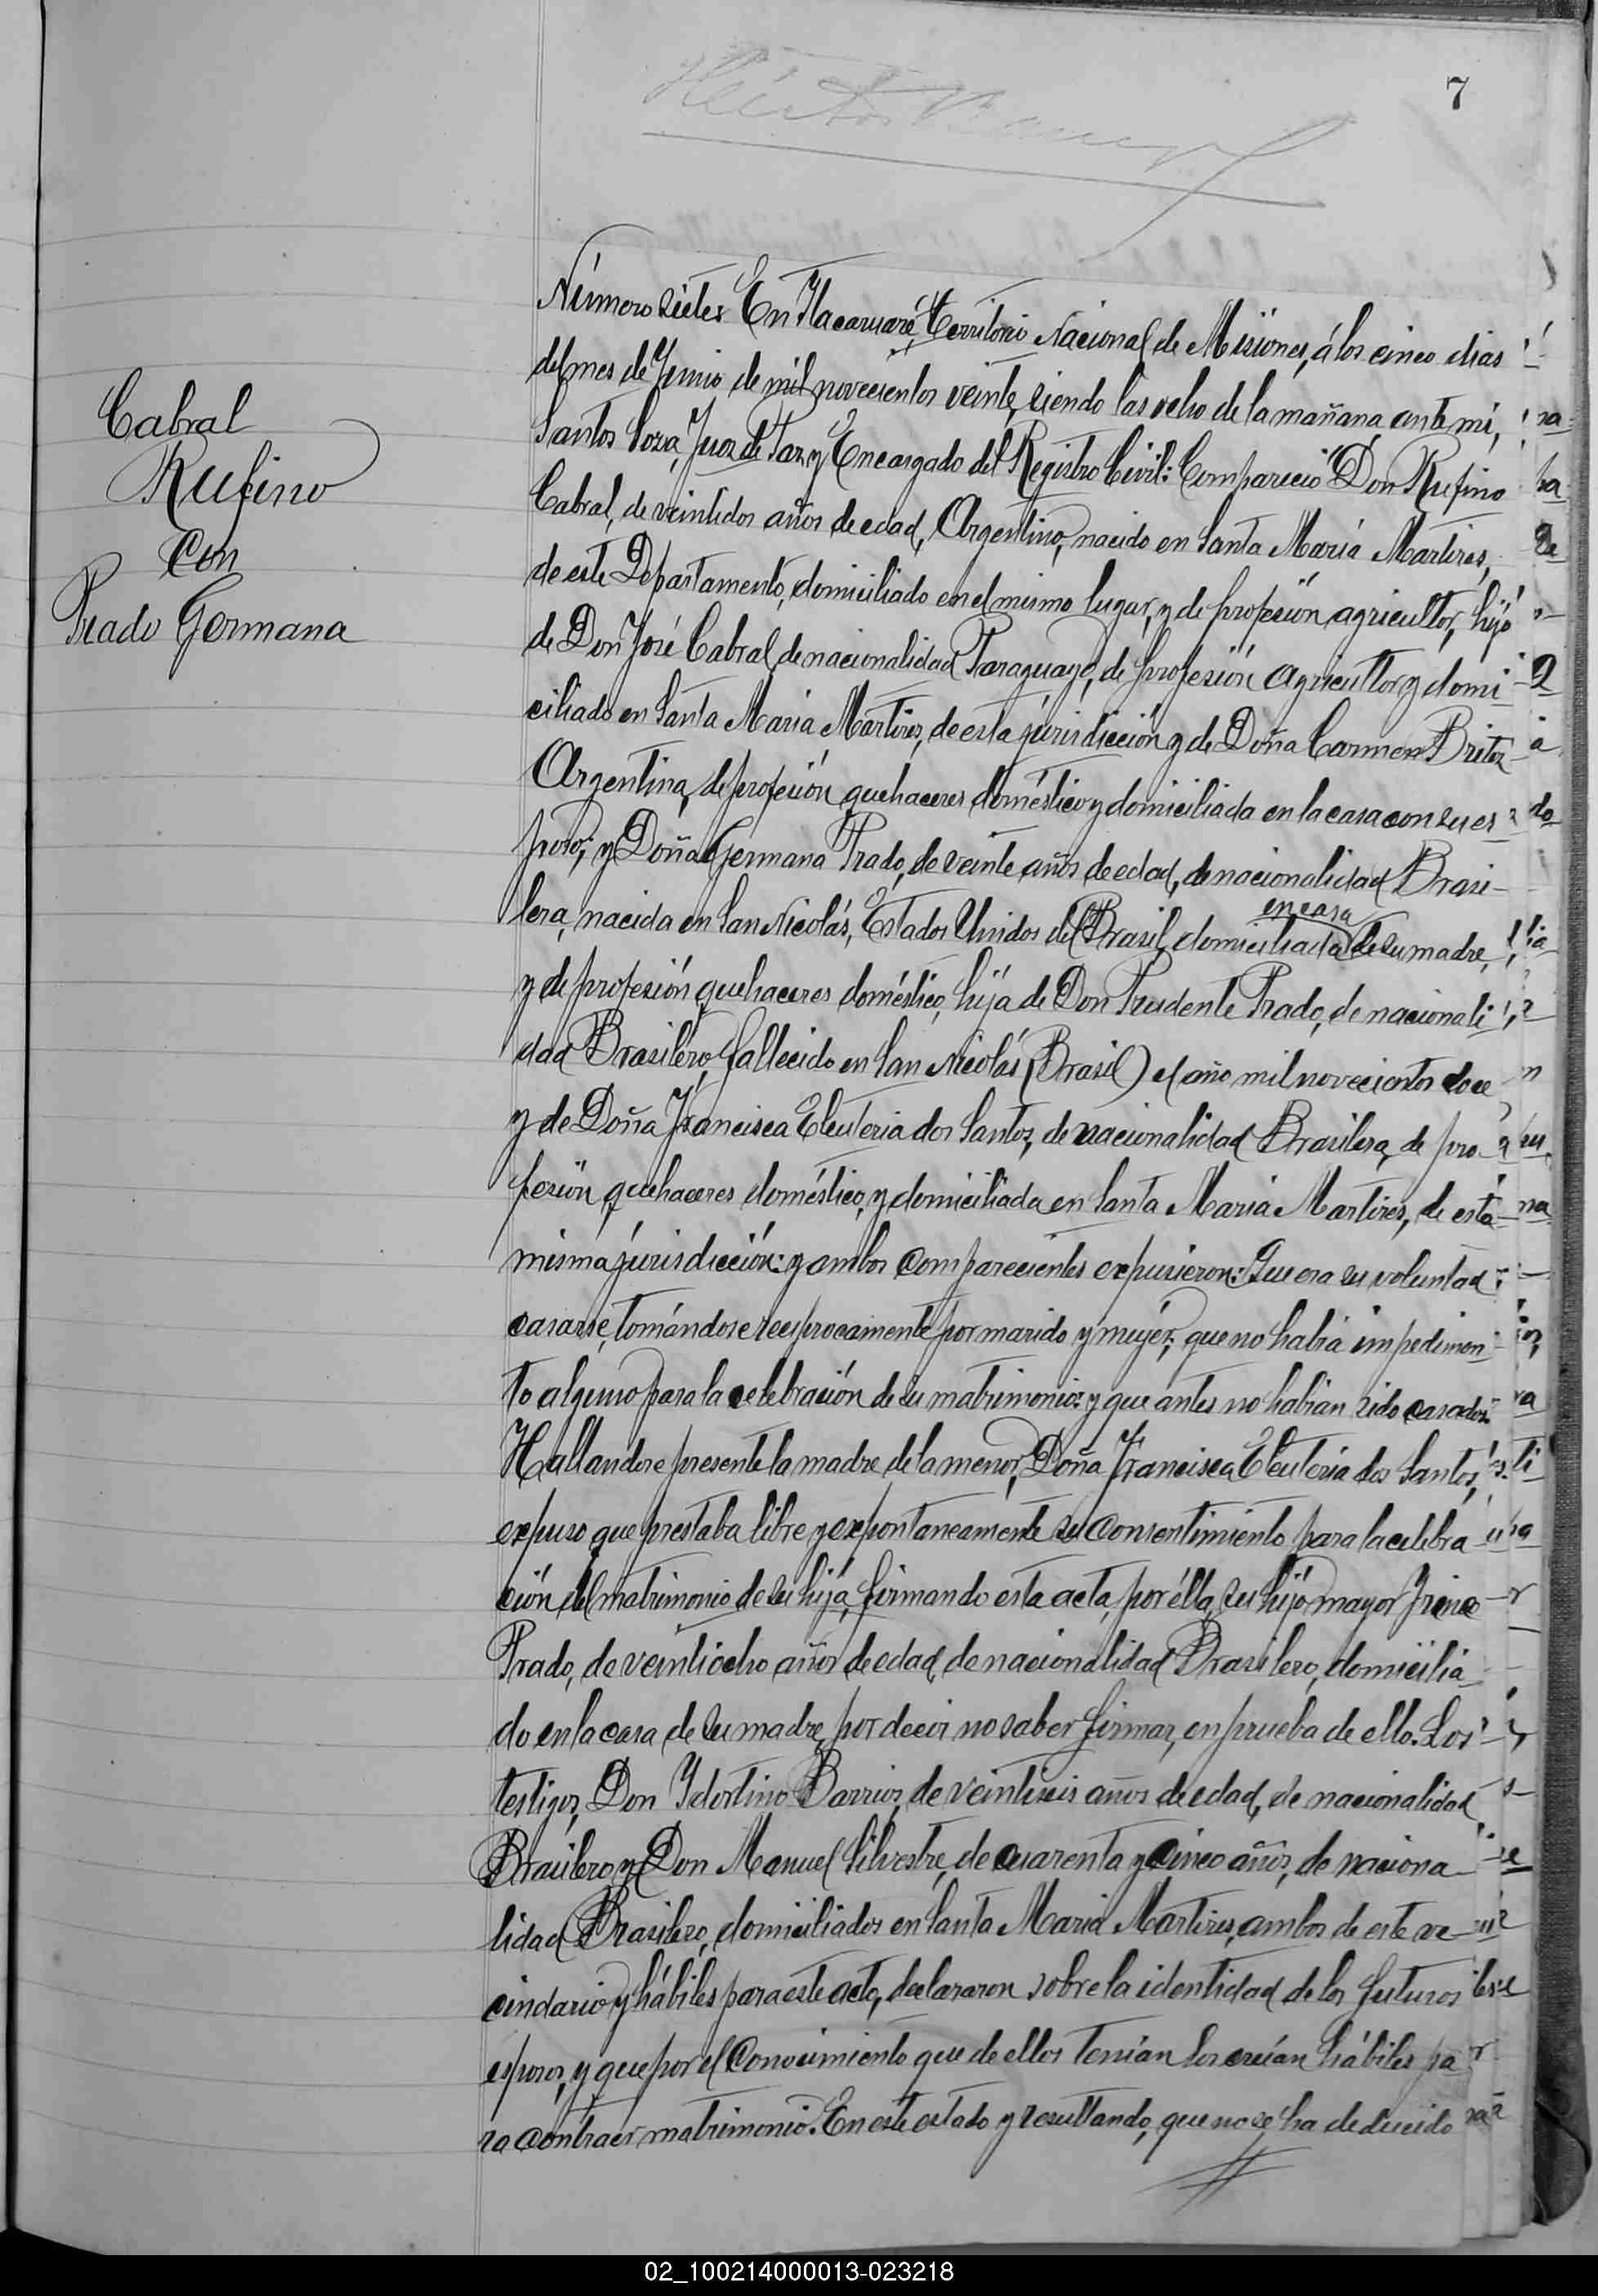 7
Cabral
Rufino
Con
Prado Germana
Número siete: En Itacaruaré, Territorio Nacional de Misiones, á los cinco dias
del mes de Junio de mil novecientos veinte, siendo las ocho de la mañana, ante mi,
Santos Sosa, Juez de Paz y Encargado del Registro Civil: Compareció "Don Rufino
Cabral, de veintidos años de edad, Argentino, nacido en Santa María Martires,
de este Departamento, domiciliado en el mismo lugar, y de profesión agricultor, hijo
de Don José Cabral, de nacionalidad Paraguayo, de profesión agricultor y domi-
ciliado en Santa Maria Martires, de esta jurisdicción y de Doña Carmen Britez
Argentina, de profesión quehaceres doméstico y domiciliada en la casa con su es-
poso; y Doña Germana Prado, de veinte años de edad, de nacionalidad Brasi-
lera, nacida en San Nicolás, Estados Unidos del Brasil, domiciliada en casa de su madre,
y de profesión quehaceres doméstico, hija de Don Prudente Prado, de nacionali-
dad Brasilero, fallecido en San Nicolás (Brasil) el año mil novecientos doce
y de Doña Francisca Eleuteria dos Santos, de nacionalidad Brasilera, de pro-
fesión quehaceres doméstico, y domiciliada en Santa Maria Martires, de esta
misma jurisdicción: y ambos comparecientes expusieron: Que era su voluntad
casarse, tomándose recíprocamente por marido y mujér; que no habia impedimen-
to alguno para la celebración de su matrimonio: y que antes no habian sido casados.
Hallandose presente la madre de la menor, Doña Francisca Eleuteria dos Santos,
expuso que prestaba libre y expontaneamente su consentimiento para la celebra-
ción del matrimonio de su hija, firmando esta acta, por élla, su hijo mayor Irineo
Prado, de veintiocho años de edad, de nacionalidad Brasilero, domicilia-
do en la casa de su madre, por decir no saber firmar, en prueba de ello. Los
testigos, Don Idortino Barrios, de veintiseis años de edad, de nacionalidad
Brasilero, y Don Manuel Silvestre, de cuarenta y cinco años, de naciona-
lidad Brasilero, domiciliados en Santa Maria Martires, ambos de este ve-
cindario y hábiles para este acto, declararon sobre la identidad de los futuros
esposos, y que por el conocimiento que de ellos tenían los creían hábiles pa-
ra contraer matrimonio. En este estado y resultando, que no se ha deducido
02_100214000013-023218